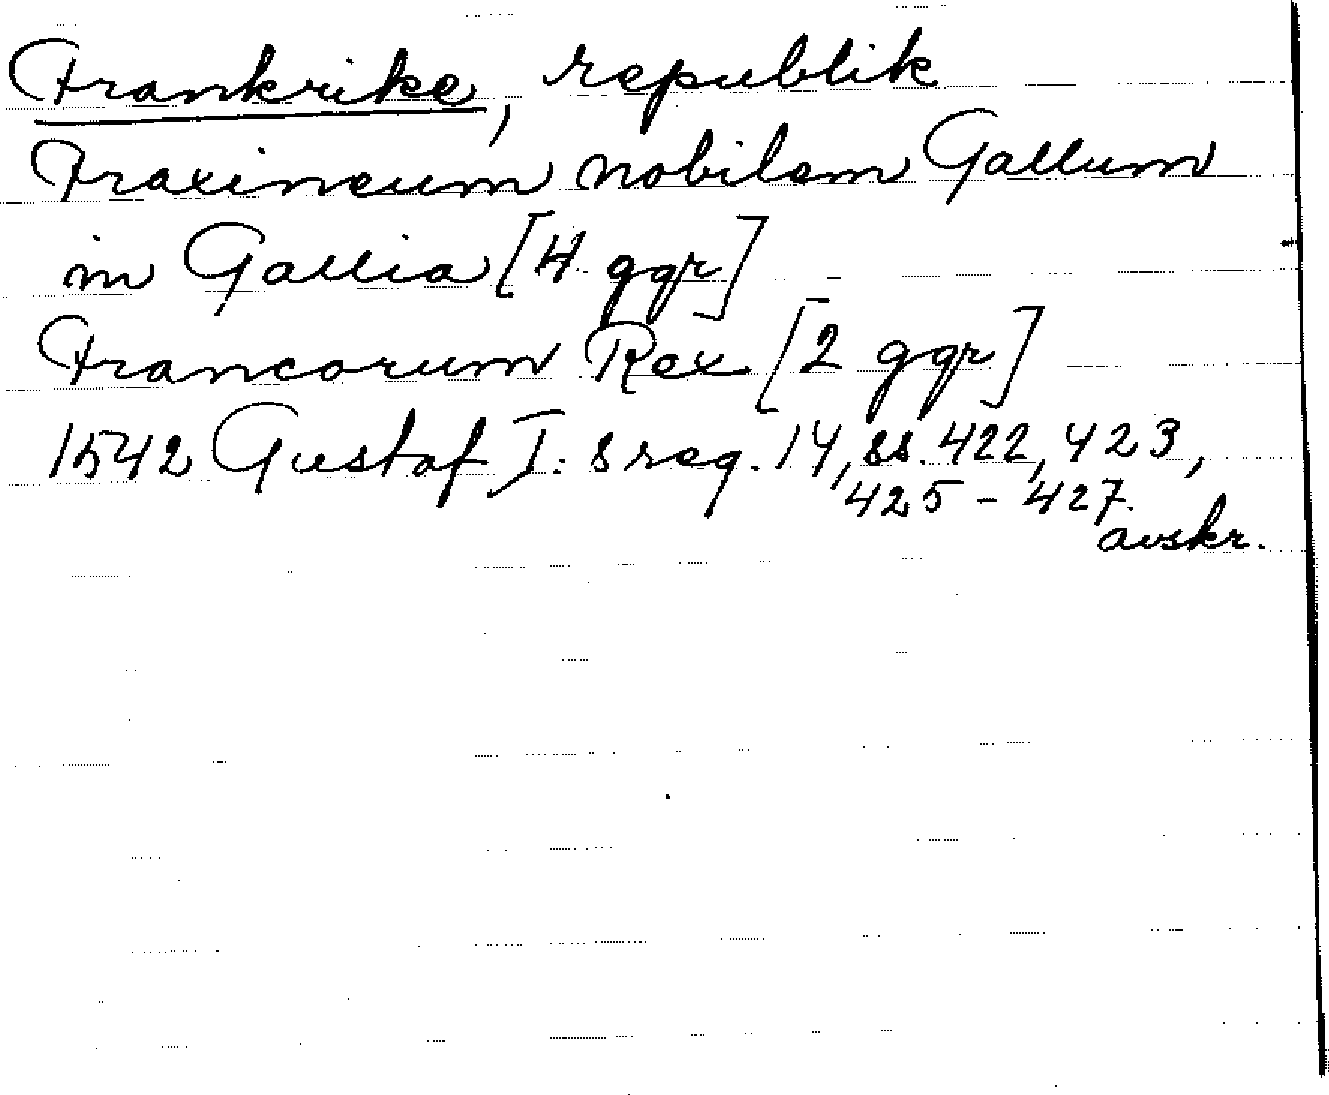 Frankrike, republik
Fraxineum nobilem Gallum
in Gallia [4 ggr]
Francorum Rex [2 ggr]
1542 Gustaf I:s reg. 14, ss. 422, 423,
425 - 427.
avskr.